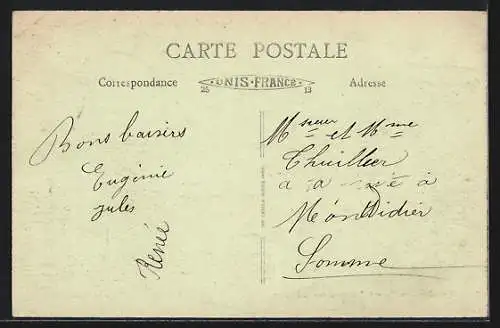 CARTE POSTALE
Correspondance
UNIS-FRANCE
25 13
Adresse
Bons baisers
Eugénie
Jules
Renée
Msieur et Mme
Thuillier
a à
Montdidier
Somme